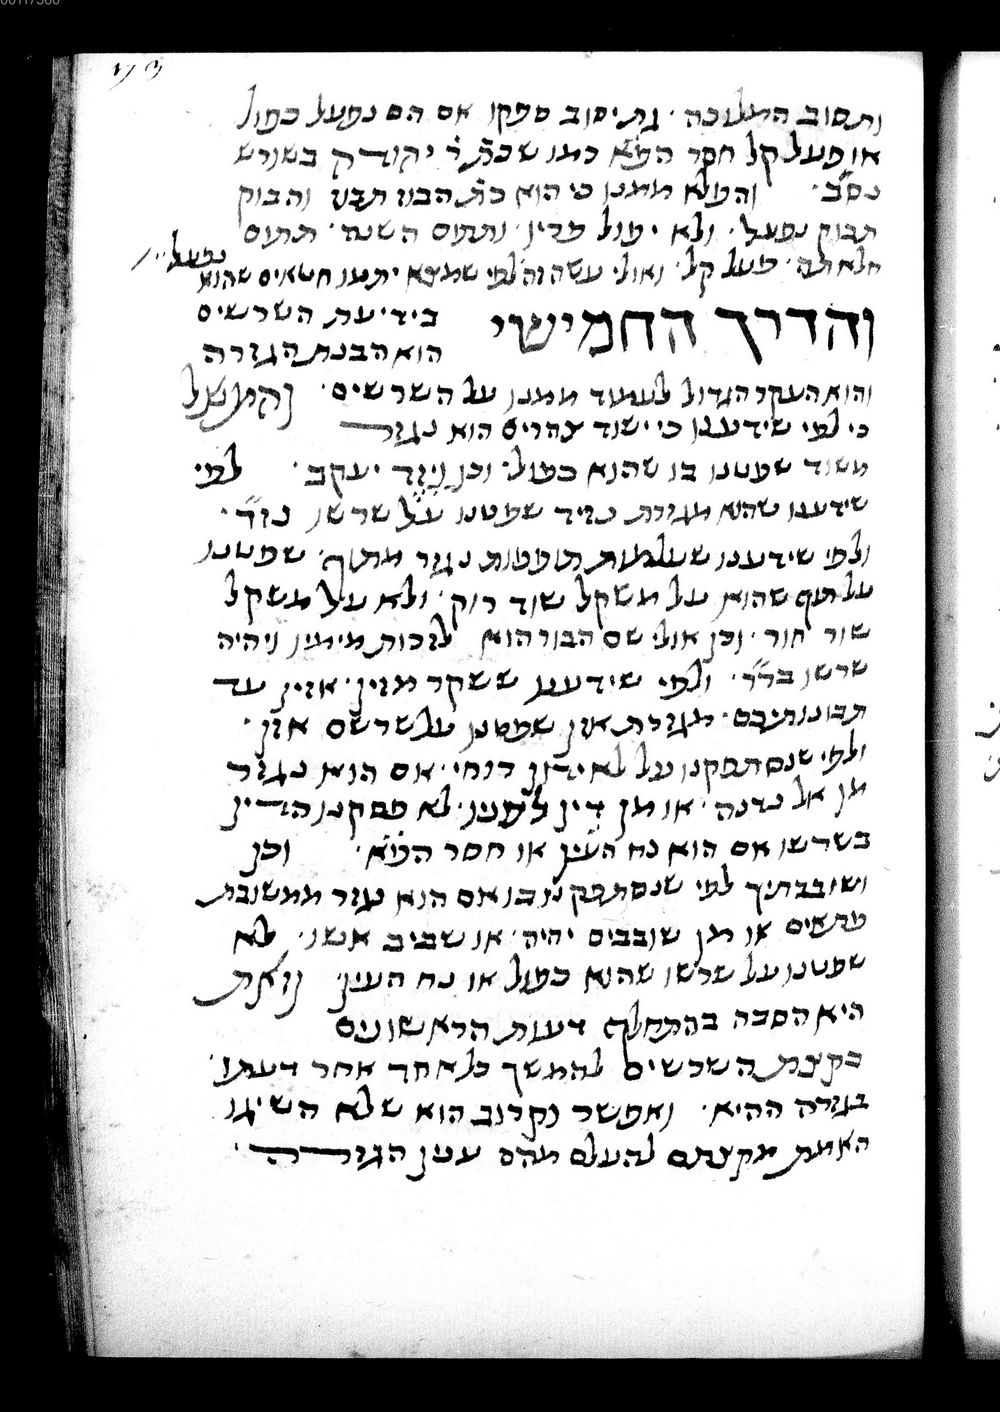 ותסוב המלוכה · גם יסוב ספקו אם הם נפעל כפול
או פעל קל חסר הפ״א כמו שכת״ר יקודק בשורש
נס״ב · והפלא ממנו כי הוא כת׳ הבוז תבוז והבוק
תבוק נפעל · ולא יפול בדין ותתום השנה · תתום
חלאתה · פעל קל · ואולי עשה זה לפי שמצא יתמו חטאים שהוא
נפעל
והדרך החמישי
בידיעת השרשים
הוא הבנת הגזרה
והוא העקר הגדול לעמוד ממנו על השרשים · והמשל
כי לפי שידענו כי ישוד צהרים הוא נגזר
משוד שפטנו בו שהוא כפול · וכן ויזד יעקב · לפי
שידענו שהוא מגזרת נזיד שפטנו על שרשו נז״ד ·
ולפי שידענו שעלמות תופפות נגזר מתוף · שפטנו
על תוף שהוא על משקל שוד רוק · ולא על משקל
שור חור · וכן אולי שם הבור הוא לזכות מימיו ויהיה
שרשו בר״ר · ולפי שידענו ששקר מזין · אזין עד
תבונותיכם · מגזרת אזן שפטנו על שרשם אזן ·
ולפי שנסתפקנו על לא ידון רוחי · אם הוא נגזר
מן אל נדנה · או מן דין לענין · לא פסקנו הדין
בשרשו אם הוא נח העין או חסר הפ״א · וכן
ושובבתיך לפי שנסתפקנו בו אם הוא נגזר ממשובת
פתאים או מן שובבים יהיה · או שביב אשו · לא
שפטנו על שרשו שהוא כפול או נח העין · וזאת
היא הסבה בהתחלף דעות הראשונים
בקצת השרשים להמשך כל אחד אחר דעתו
בגזרה ההיא · ואפשר וקרוב הוא שלא השיגו
האמת מקצתם להעלם מהם ענין הגזרה ·